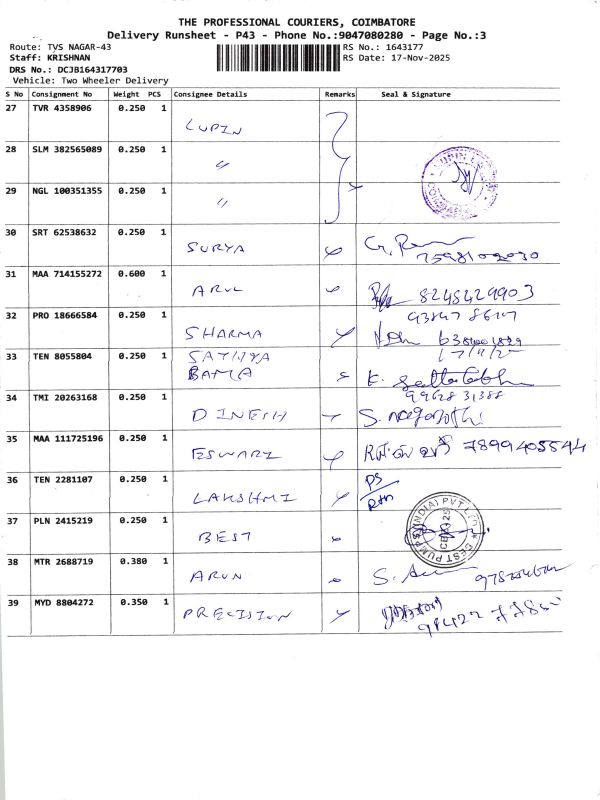 THE PROFESSIONAL COURIERS, COIMBATORE
Delivery Runsheet - P43 - Phone No.:9047080280 - Page No.:3
Route: TVS NAGAR-43 RS No.: 1643177
Staff: KRISHNAN RS Date: 17-Nov-2025
DRS No.: DCJB164317703
Vehicle: Two Wheeler Delivery
S No Consignment No Weight PCS Consignee Details Remarks Seal & Signature
27 TVR 4358906 0.250 1 LUPIN
28 SLM 382565089 0.250 1 "
29 NGL 100351355 0.250 1 "
30 SRT 62538632 0.250 1 SURYA
31 MAA 714155272 0.600 1 ARUL 8248429903
32 PRO 18666584 0.250 1 SHARMA
33 TEN 8055804 0.250 1 SATHYA
BAMA
34 TMI 20263168 0.250 1 DINESH 99628 31388
35 MAA 111725196 0.250 1 ESWARI 7899405544
36 TEN 2281107 0.250 1 LAKSHMI
37 PLN 2415219 0.250 1 BEST
BEST PUMPS (INDIA) PVT LTD
38 MTR 2688719 0.380 1 ARUN
39 MYD 8804272 0.350 1 PRECISION